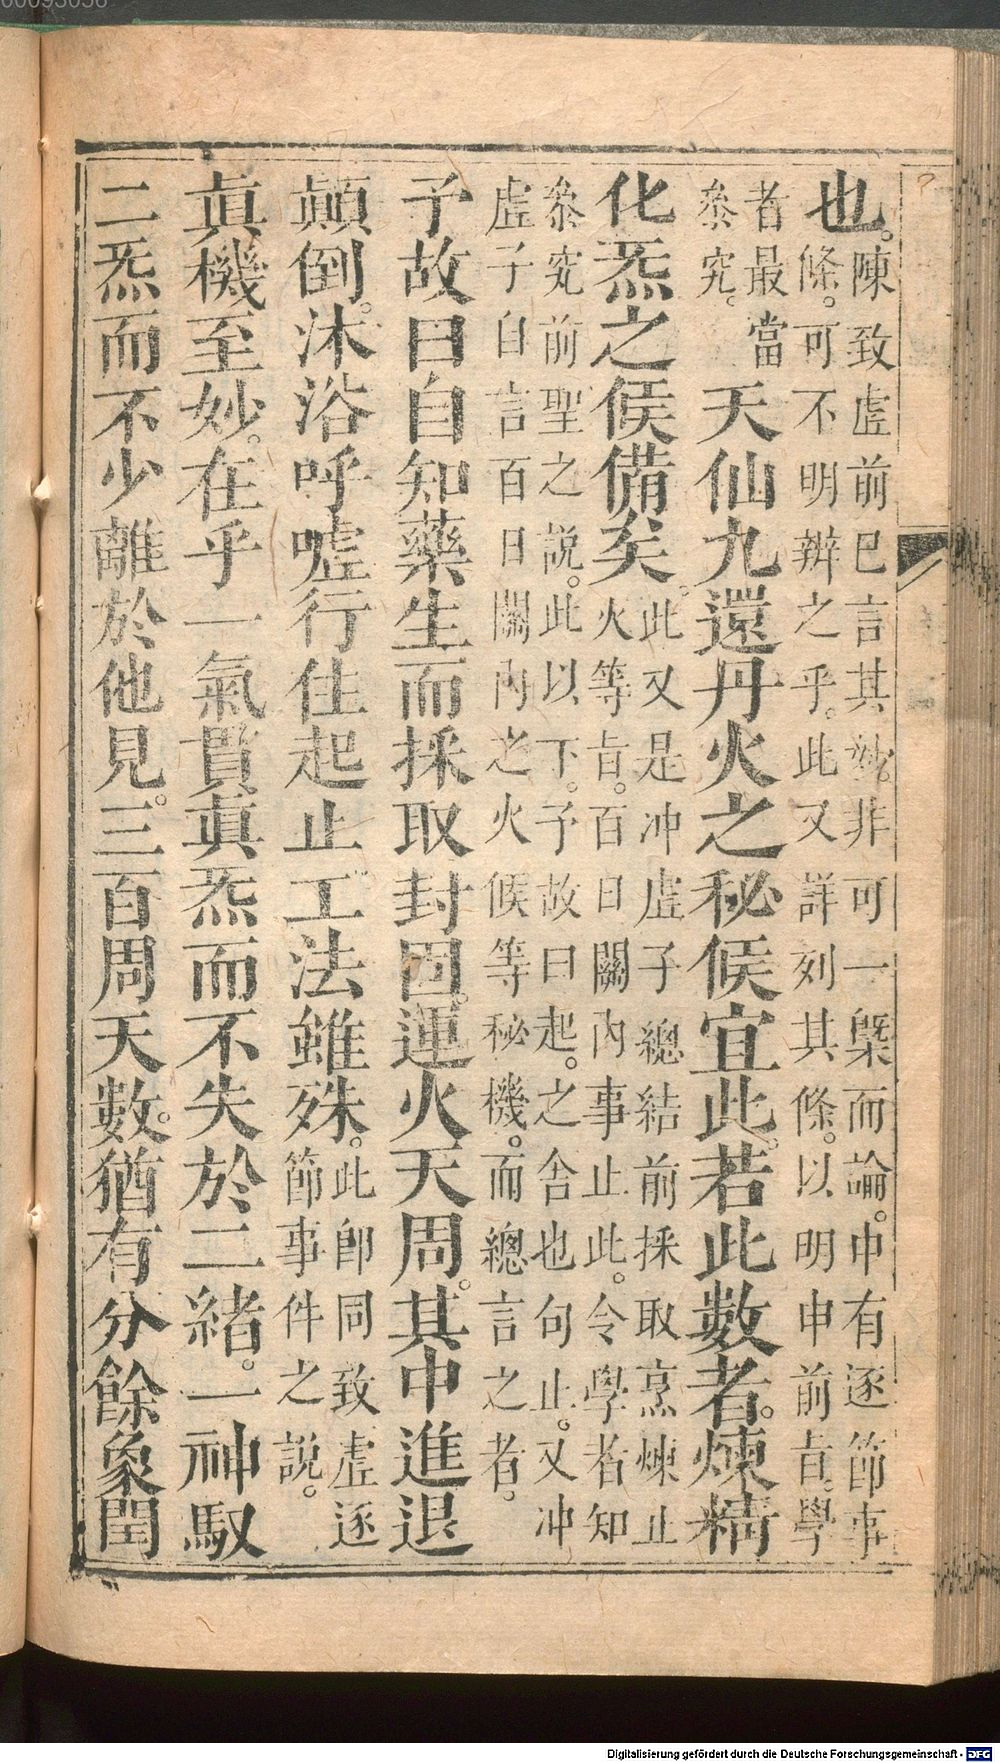 00093038
也。陳致虛前已言其妙。非可一槩而論。中有逐節事
條。可不明辨之乎。此又詳列其條。以明申前㫖。學
者最當
叅究。
天仙九還丹火之秘候宜此。若此數者。煉精
化炁之候備矣。此又是冲虛子總結前採取烹煉止
火等㫖。百日關內事止此。令學者知
叅究前聖之說。此以下。予故曰起。之舍也句止。又冲
虛子自言百日關內之火候等秘機。而總言之者。
予故曰自知藥生而採取封固。運火天周。其中進退
顛倒。沐浴呼嘘行住起止。工法雖殊。此卽同致虛逐
節事件之說。
眞機至妙。在乎一氣貫眞炁而不失於二緒。一神馭
二炁而不少離於他見。三百周天數。猶有分餘象閏
Digitalisierung gefördert durch die Deutsche Forschungsgemeinschaft - DFG